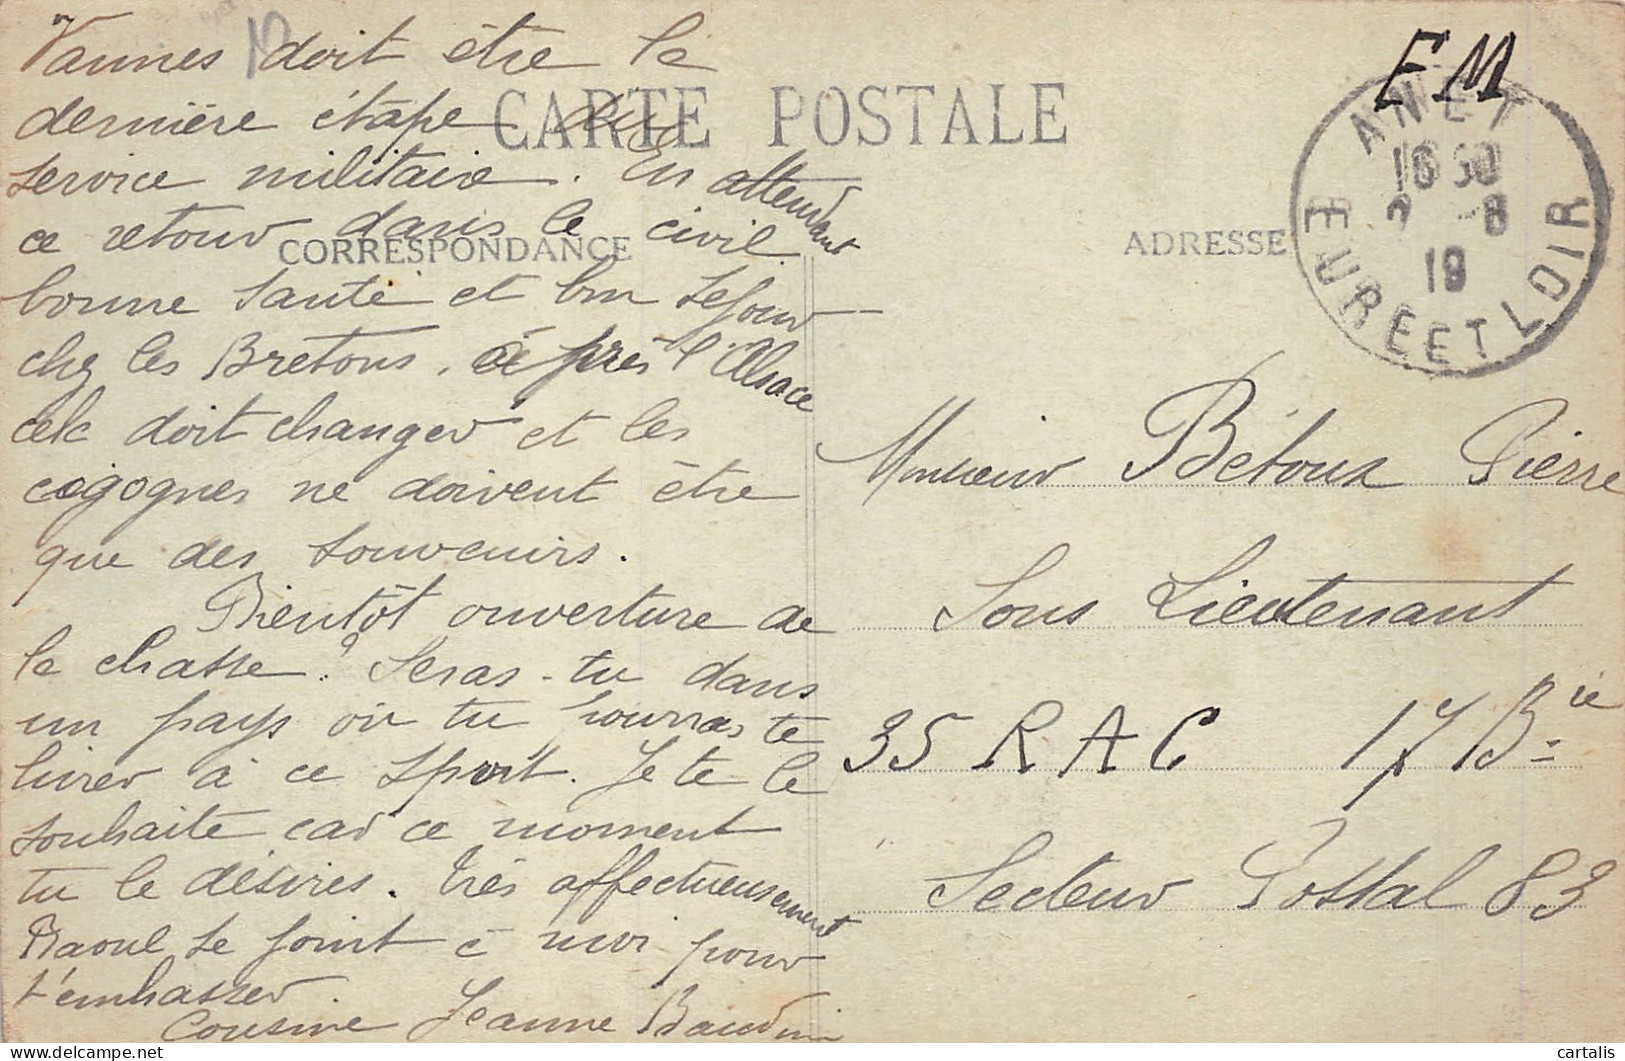 Vannes doit être la
dernière étape du
service militaire. En attendant
ce retour dans le civil
bonne santé et bon séjour
chez les Bretons. Après l'Alsace
cela doit changer et les
cigognes ne doivent être
que des souvenirs.
Bientôt ouverture de
la chasse? Seras-tu dans
un pays où tu pourras te
livrer à ce sport. Je te le
souhaite car ce moment
tu le désires. Très affectueusement
Raoul se joint à moi pour
t'embrasser.
Cousine Jeanne Baudouin
CARTE POSTALE
CORRESPONDANCE
ADRESSE
FM
ANET
16 30
-8
19
EURE ET LOIR
Monsieur Bétoux Pierre
Sous Lieutenant
35 RAC 17 Bie
Secteur Postal 83
cartalis